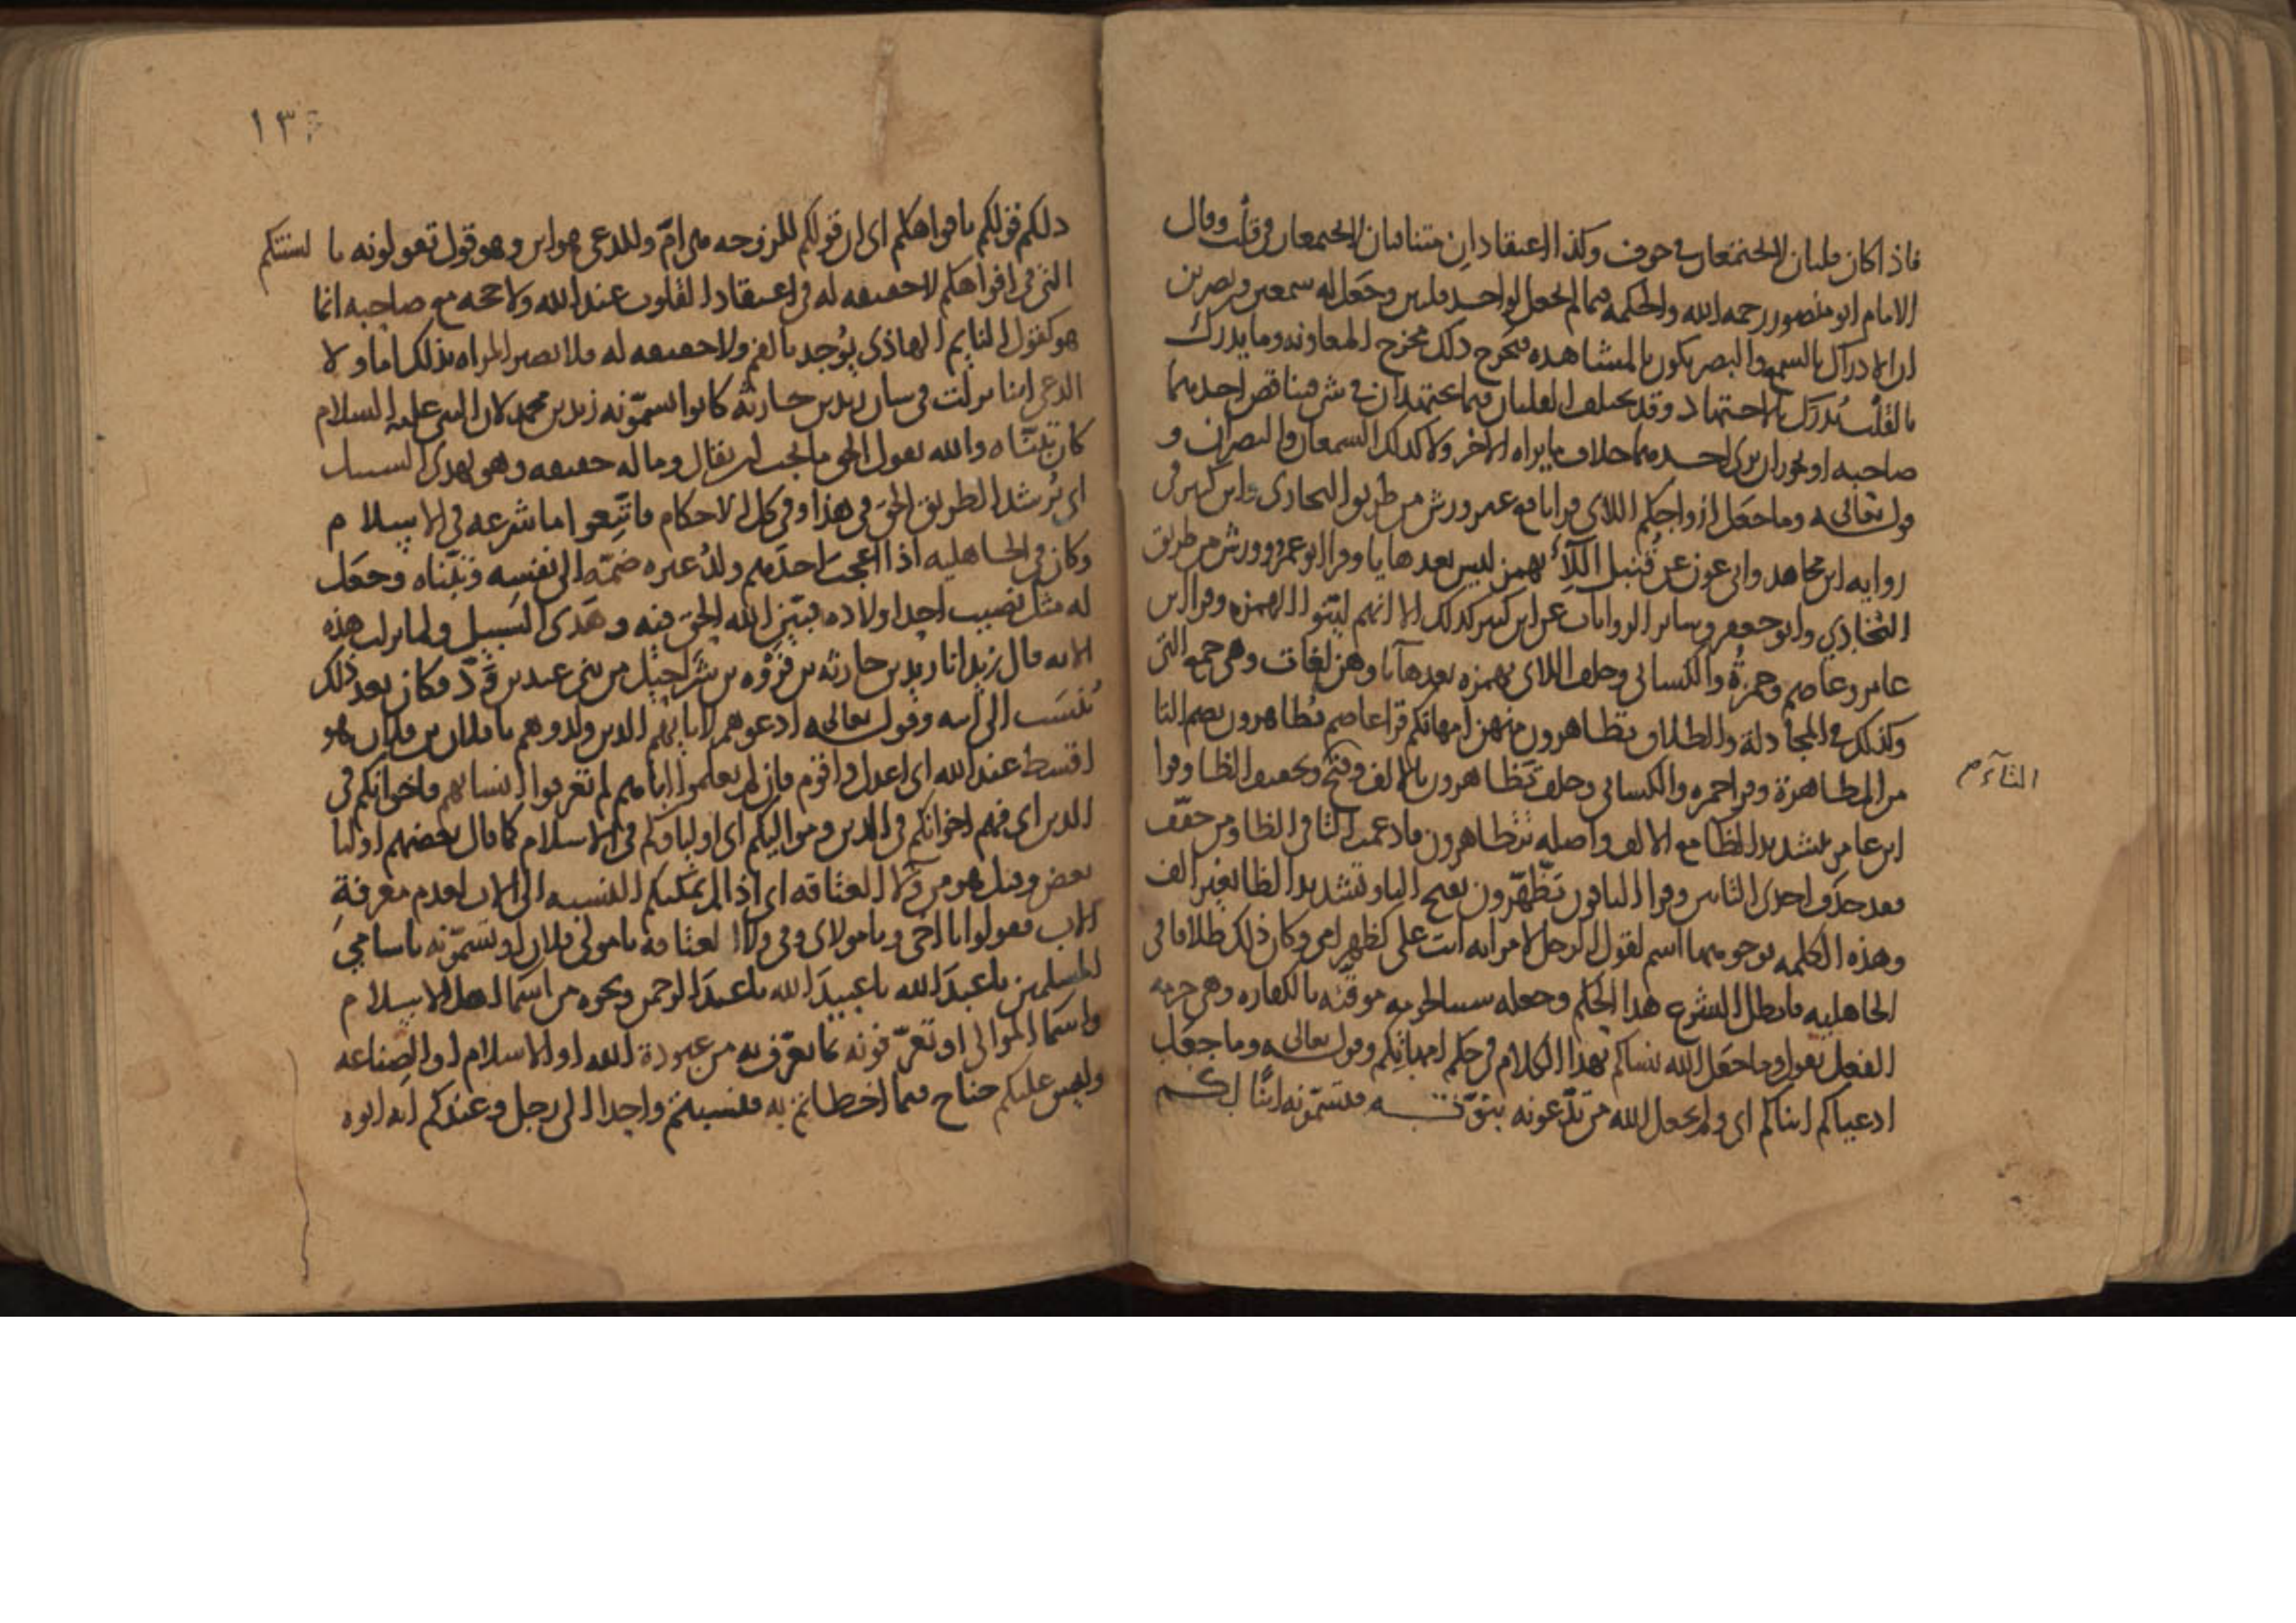 فاذا كان قلبان لا يجتمعان في جوف وكذا اعتقادان متنافيان لا يجتمعان في قلب وقال
الامام ابو منصور رحمه الله والحكمة فيما لم يجعل لواحد قلبين وجعل له سمعين وبصرين
ان الادراك بالسمع والبصر يكون بالمشاهده فيخرج ذلك مخرج المعاونه وما يدرك
بالقلب يدرك بالاجتهاد وقد يختلف القلبان فيما يجتهدان في شي فيناقض احدهما
صاحبه او يجوز ان يرى احدهما خلاف ما يراه الاخر ولا كذلك السمعان والبصران و
قوله تعالى وما جعل ازواجكم اللاي قرا نافع غير ورش من طريق البخاري وابن كثير في
روايه ابن مجاهد وابي عون عن قنبل اللاء بهمز ليس بعدها يا وقرا ابو عمرو وورش من طريق
البخاري وابو جعفر وساير الروايات عن ابن كثير كذلك الا انهم لينوا الهمزه وقرا ابن
عامر وعاصم وحمزة والكسائي وخلف اللاي بهمزه بعدها يا وهن لغات وهي جمع التي
وكذلك في المجادلة والطلاق تظاهرون منهن امهاتكم قرا عاصم تظاهرون بضم التا
من المظاهرة وقرا حمزه والكسائي وخلف تظاهرون بالالف وفتح وتخفيف الظا وقرا
التآء م
ابن عامر بتشديد الظا مع الالف واصله تتظاهرون فادغمت التا في الظا ومن خفف
فقد حذف احدى التاين وقرا الباقون تظهرون بفتح التا وتشديد الظا بغير الف
وهذه الكلمه يوجد منها اسم لقول الرجل لامراته انت علي كظهر امي وكان ذلك طلاقا في
الجاهليه فابطل الشرع هذا الحكم وجعله سببا لحرمه موقته بالكفاره وهي حرمه
الفعل يقول وما جعل الله نساكم بهذا الكلام في حكم امهاتكم وقوله تعالى وما جعل
ادعياكم ابناكم اى ولم يجعل الله من تدعونه بنوته فتسمونه ابنًا لكم
١٣
ذلكم قولكم بافواهكم اى ان قولكم للمزوجه هي ام وللدعي هو ابن وهو قول تقولونه بالسنتكم
التي في افواهكم لا حقيقه له في اعتقاد القلوب عند الله ولا حجه مع صاحبه انما
هو كقول النايم الهاذى يوجد بالفم ولا حقيقه له فلا تصير المراه بذلك اما ولا
الدعي ابنا نزلت في شان زيد بن حارثة كانوا يسمونه زيد بن محمد لان النبي عليه السلام
كان تبناه والله يقول الحق ما يجب ان يقال وما له حقيقه وهو يهدى السبيل
اى يرشد الطريق الحق في هذا وفي كل الاحكام فاتبعوا ما شرعه في الاسلام
وكان في الجاهليه اذا اعجب احدهم ولد غيره ضمه الى نفسه وتبناه وجعل
له مثل نصيب احد اولاده فبين الله الحق فيه وهدى السبيل ولما نزلت هذه
الايه قال زيد انا زيد بن حارثه بن فروه بن شراحيل من بني عبد بن ود فكان بعد ذلك
ينسب الى ابيه وقوله تعالى ادعوهم لابايهم الذين ولدوهم يا فلان بن فلان هو
اقسط عند الله اى اعدل واقوم فان لم تعلموا اباهم لم تعرفوا انسابهم فاخوانكم في
الدين اى فهم اخوانكم في الدين ومواليكم اى اولياوكم في الاسلام كما قال بعضهم اوليا
بعض وقيل هو من ولا العتاقه اى اذا لم يمكنكم النسبه الى الاب لعدم معرفة
الاب فقولوا يا اخي ويا مولاى وفي ولا العتاقه يا مولى فلان او تسمونه باسامي
المسلمين يا عبد الله يا عبيد الله يا عبد الرحمن ونحوه من اسما اهل الاسلام
واسما الموالى او تعرفونه بما يعرف به من عبودة الله او الاسلام او الصناعه
وليس عليكم جناح فيما اخطاتم به فنسبتم واحدا الى رجل وعندكم انه ابوه